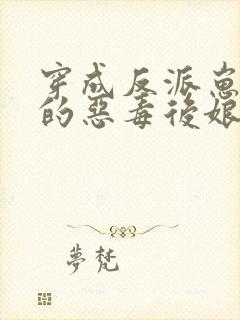 穿成反派崽
的惡毒後娘
夢梵